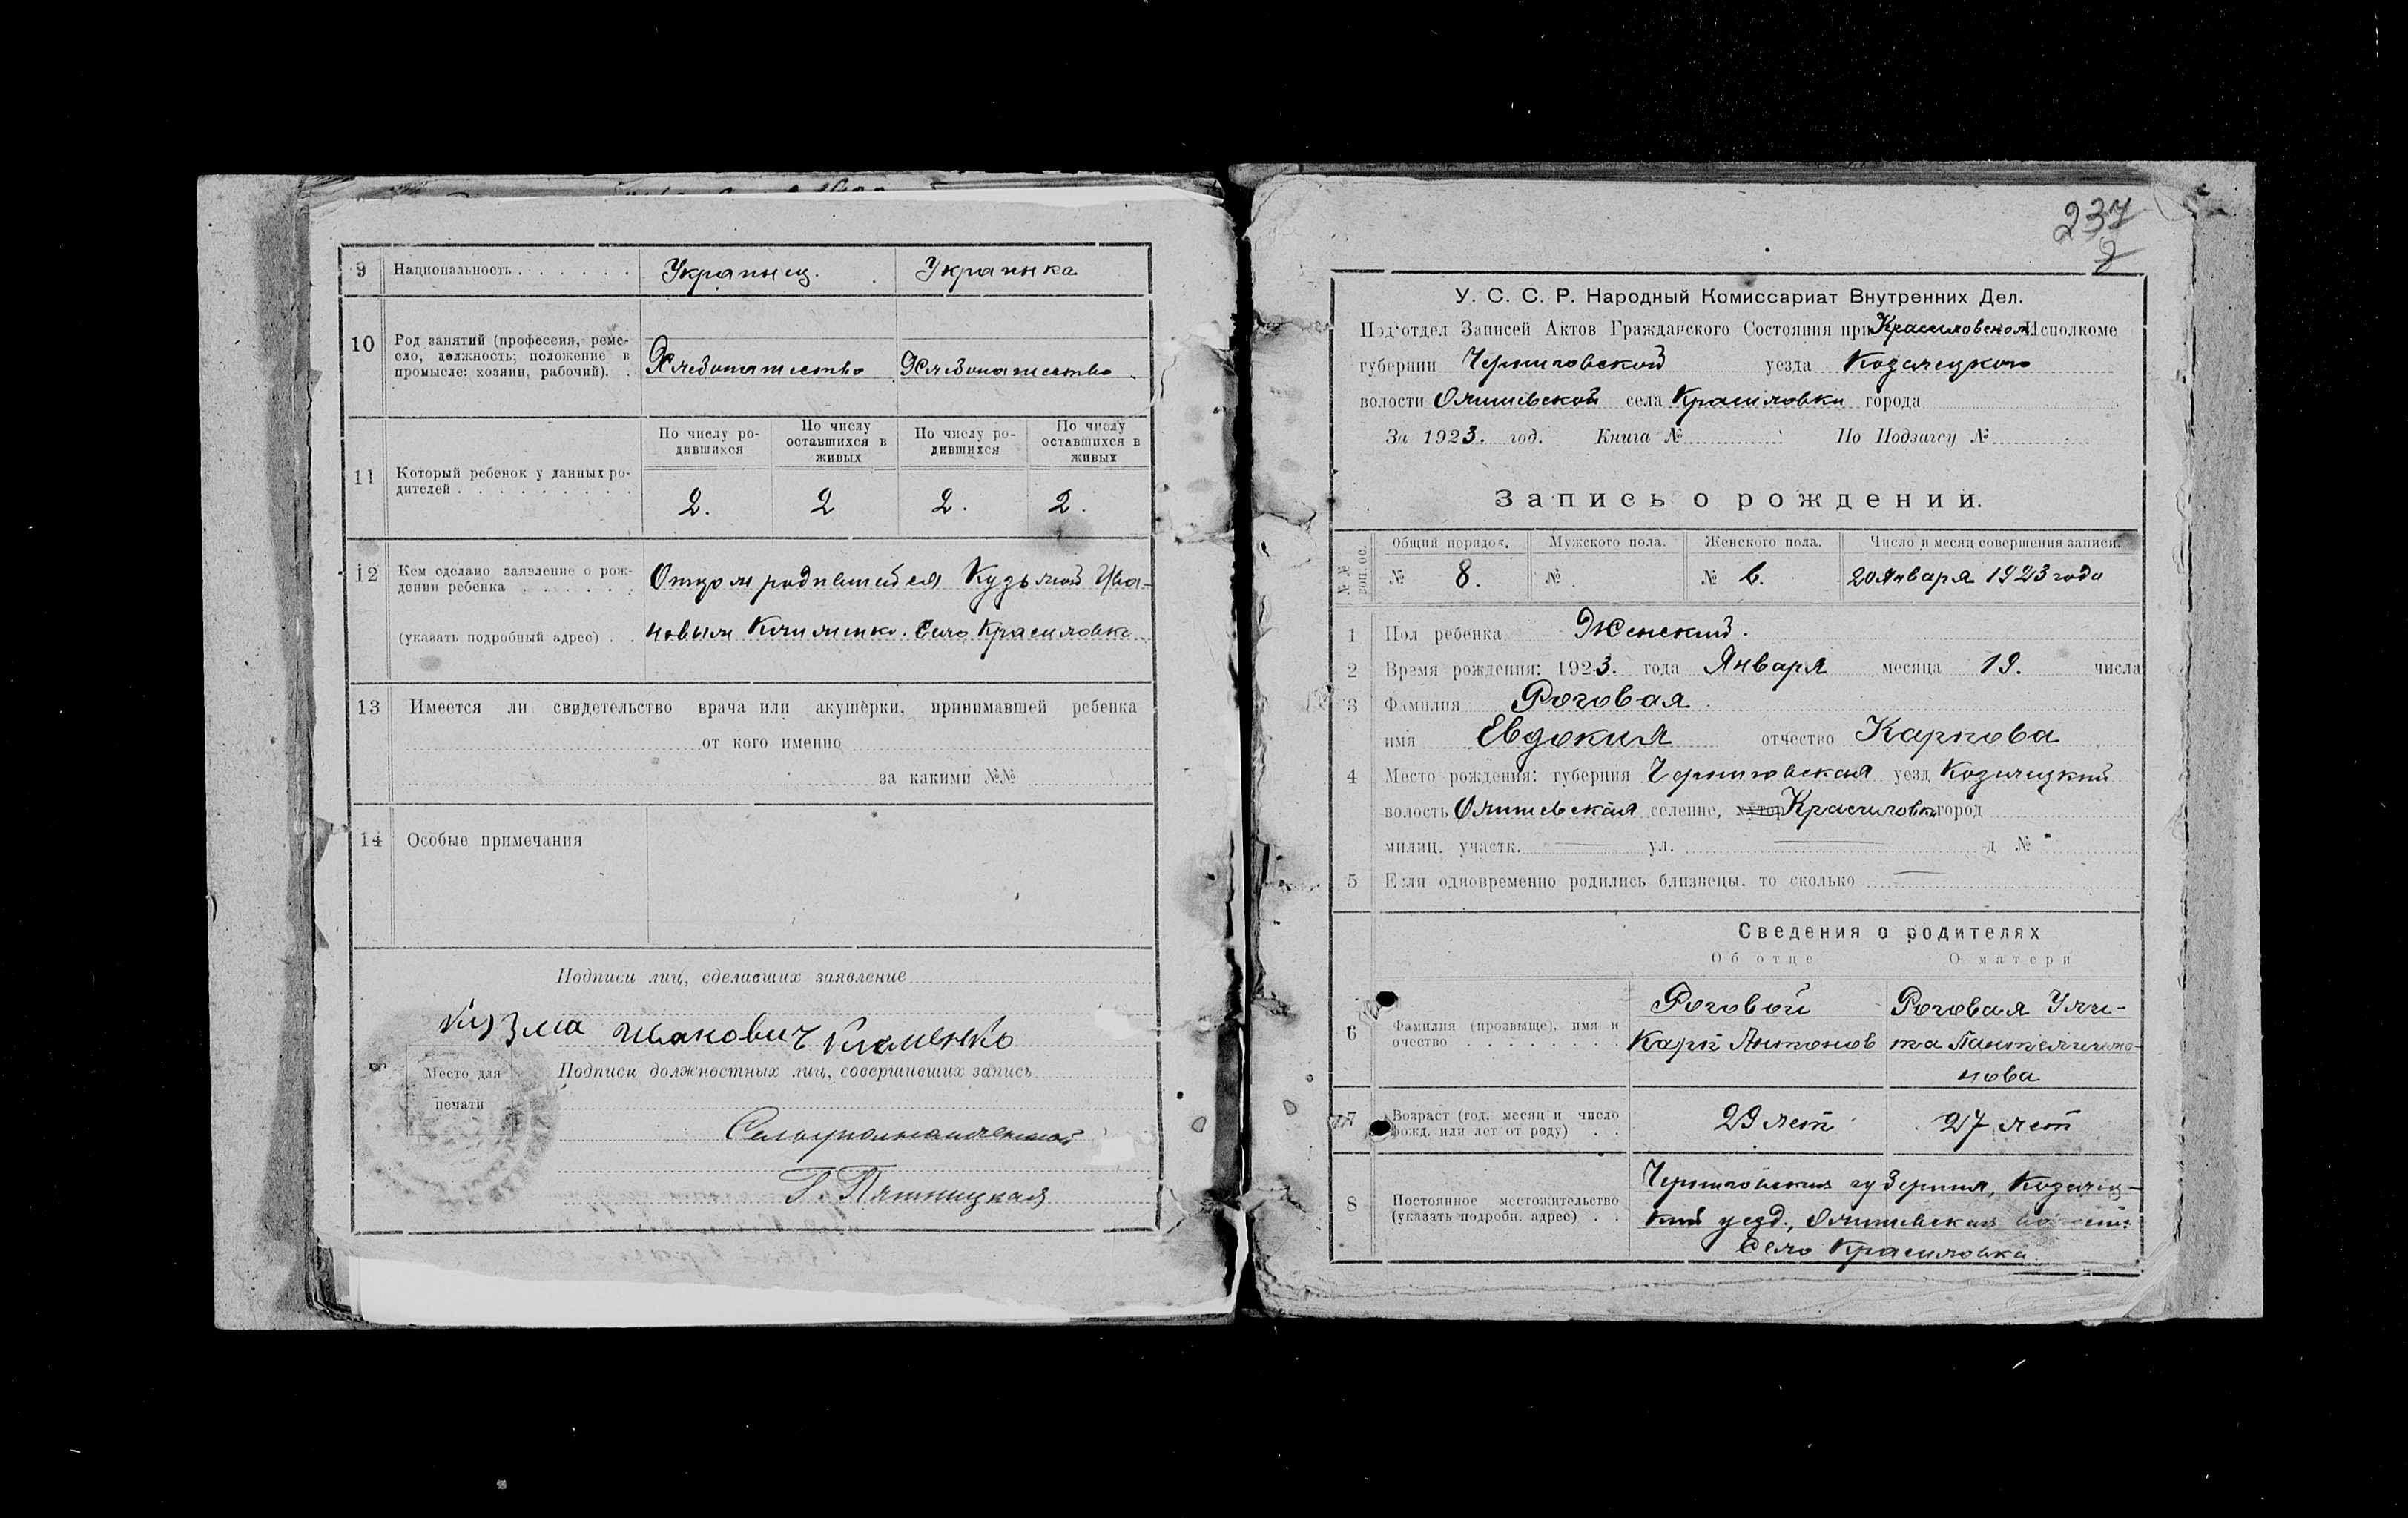 9 Национальность . . . . . . Украинец. Украинка
10 Род занятий (профессия, реме-
сло, должность; положение в
промысле: хозяин, рабочий). . Хлебопашество Хлебопашество
По числу ро-
дившихся По числу
оставшихся в
живых По числу ро-
дившихся По числу
оставшихся в
живых
11 Который ребенок у данных ро-
дителей . . . . . . . . . 2. 2 2. 2.
12 Кем сделано заявление о рож-
дении ребенка . . . . . . Отцом родившейся Кузьмой Ива-
(указать подробный адрес) . . новым Клименко. Село Красиловка
13 Имеется ли свидетельство врача или акушерки, принимавшей ребенка
от кого именно
за какими №№
14 Особые примечания
Подписи лиц, сделавших заявление
Кузма Иванович Клименко
Место для
печати
Подписи должностных лиц, совершивших запись
Сельуполномоченный
Пятницкая
237
2
У. С. С. Р. Народный Комиссариат Внутренних Дел.
Под'отдел Записей Актов Гражданского Состояния при Красиловском Исполкоме
губернии Черниговской уезда Козелецкого
волости Олишевской села Красиловки города
За 1923. год. Книга № По Подзагсу №
Запись о рождении.
№№ воп. ос. Общий порядок. Мужского пола. Женского пола. Число и месяц совершения записи.
№ 8. № № 6. 20 Января 1923 года
1 Пол ребенка Женский.
2 Время рождения: 1923. года Января месяца 19. числа
3 Фамилия Роговая
имя Евдокия отчество Карпова
4 Место рождения: губерния Черниговская уезд Козелецкий
волость Олишевская селение, хутор Красиловка город
милиц. участк. ул. д №
5 Если одновременно родились близнецы. то сколько
Сведения о родителях
Об отце О матери
6 Фамилия (прозвище), имя и
очество . . . . . . . . Роговой
Карп Антонов Роговая Ули-
та Пантелеимо-
нова
7 Возраст (год, месяц и число
рожд. или лет от роду) . . 29 лет 27 лет
8 Постоянное местожительство
(указать подробн. адрес) . . Черниговская губерния, Козелец-
кий уезд., Олишевская волость
село Красиловка